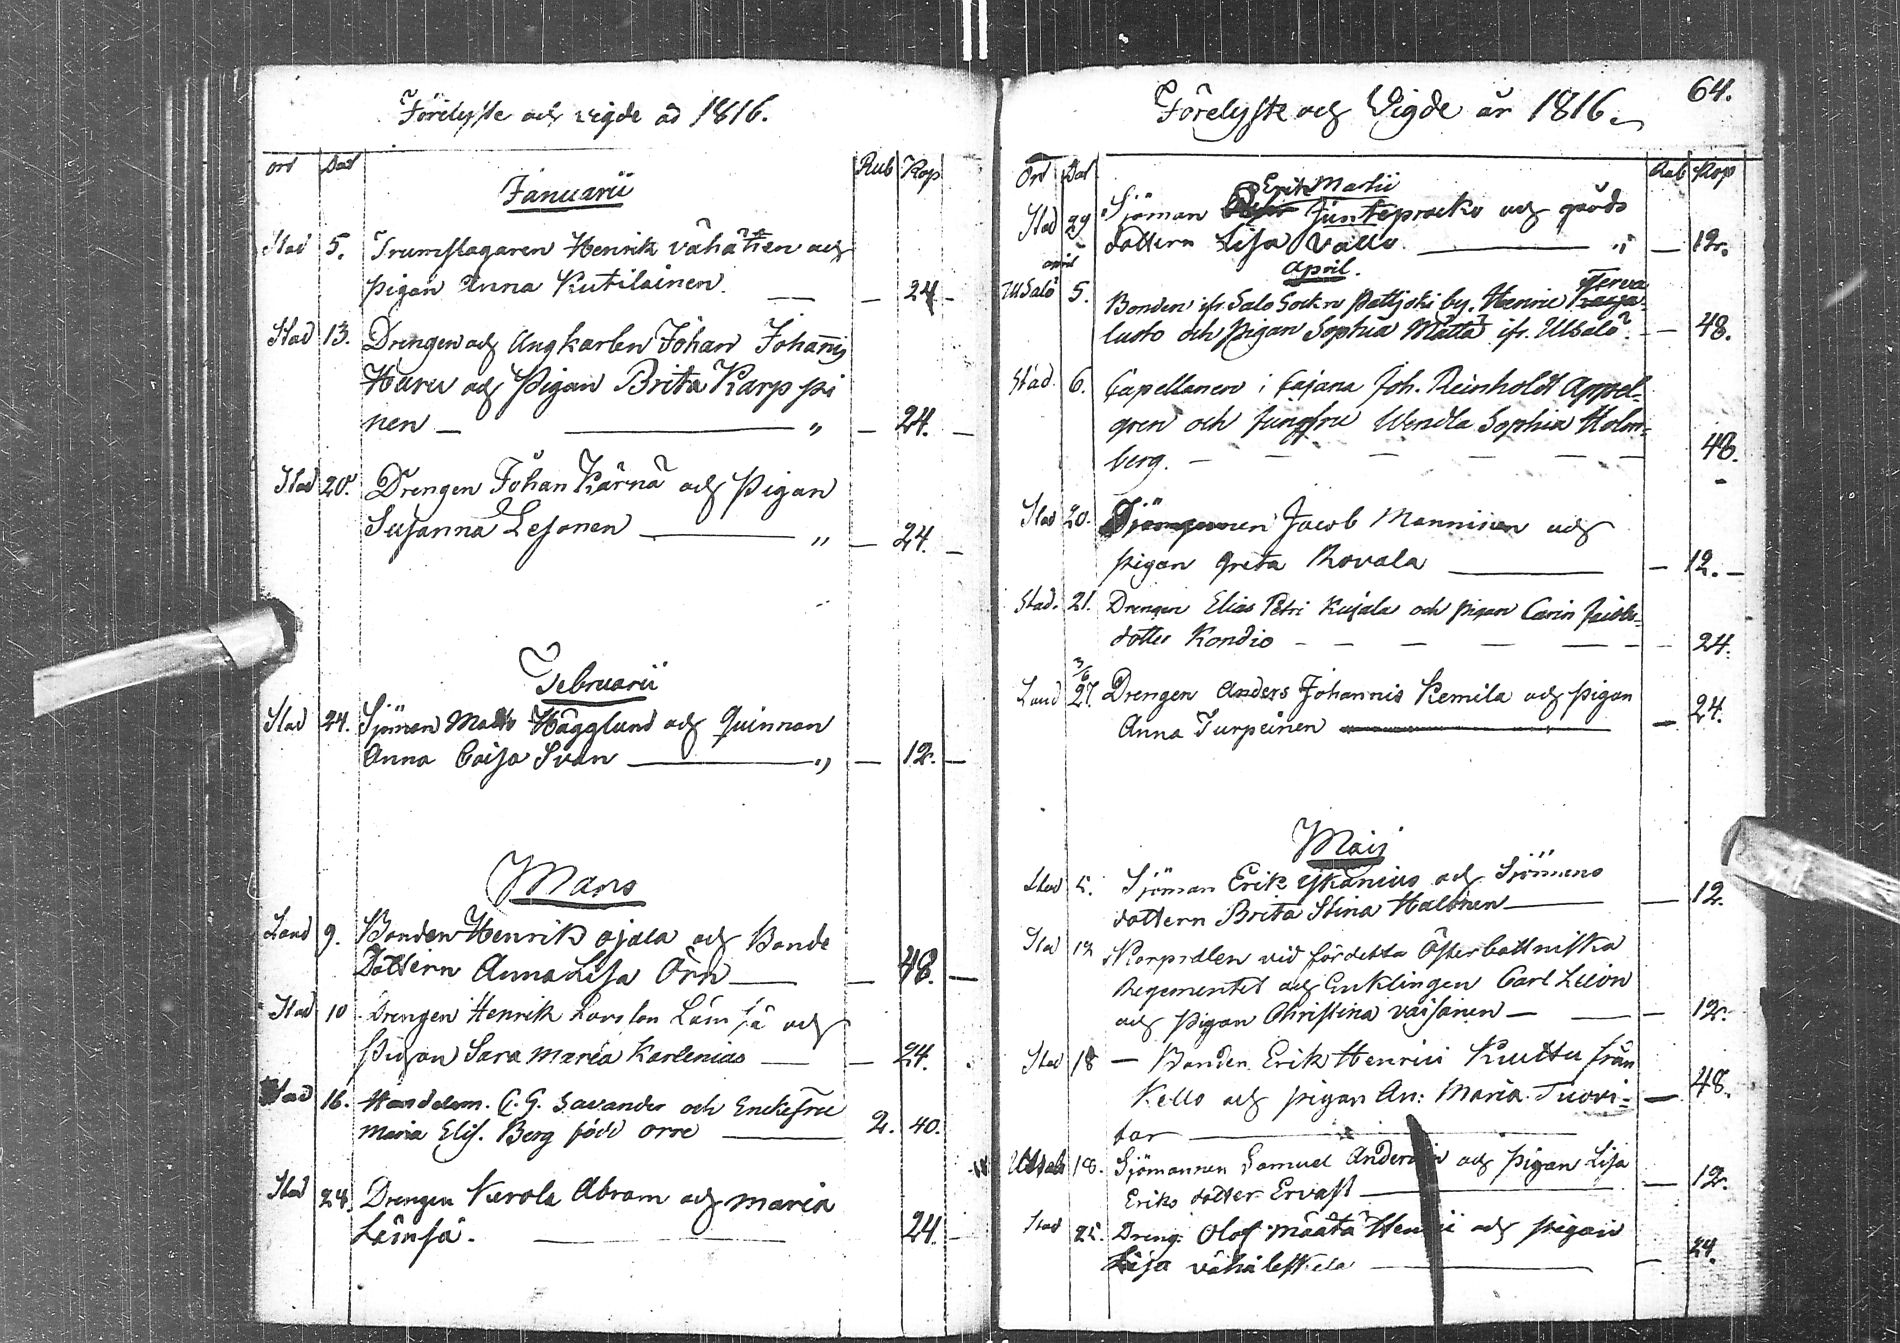 Förelyste och vigde åd 1816.
Ort Dat Rub Kop
Januarii
Stad 5. Trumslagaren Henrik Vähä och
pigan Anna Kutilainen. — — 24 —
Stad 13. Drengen och Ungkarlen Johan Johannis
Haru och Pigan Brita Karppi
nen — — „ — 24. —
Stad 20. Drengen Johan Kärnä och Pigan
Susanna Lesonen — „ — 24. —
Februarii
Stad 24. Sjöman Matts Hägglund och Quinnan
Anna Caisa Svan — „ — 12. —
Mars
Land 9. Bonden Henrik Ojala och Bonde
Dottern Anna Lisa Örn — — 48. —
Stad 10 Drengen Henrik Larsson Lämsä och
Pigan Sara Maria Karlenius — — 24.
Stad 16. Handelsm. C. G. Savander och Enkefru
Maria Elis. Berg född Orre — 2. 40.
Stad 24. Drengen Kerola Abram och Maria
Lämsä. — 24. —
64.
Förelyste och Vigde år 1816.
Ort Dat Rub Kop
Martii
Erik
Stad 29 Sjöman Junteprocko och gårds
dottern Lisa Vallo. — „ — 12.
April.
april
Terva
Ulsalo 5. Bonden ifr. Salo Sockn Pattjoki by. Henric
lusto och Pigan Sophia Mätta ifr. Ulsalo. — 48.
Stad 6. Capellanen i Cajana Joh. Reinholdt Appel-
gren och Jungfru Wendla Sophia Holm-
berg. — — — — — 48.
Stad 20. Jacob Manninen och
pigan Greta Rovala — — 12. —
Stad. 21. Drengen Elias Petri Kujala och pigan Carin
dotter Kondio — — — — — 24.
3/6
Land 27. Drengen Anders Johannis Kemila och pigan
Anna Turpeinen — — 24.
Maij
Stad 5. Sjöman Erik Ykänius och Sjömans
dottern Brita Stina Halonen — — 12.
Stad 12 Korpralen vid fördetta Österbottniska
Regementet och Enklingen Carl Leion
och Pigan Christina Väisänen — — — 12.
Stad 18 — Bonden Erik Henrici Kuittu från
Kello och pigan An: Maria Tuovi- — 48.
tar —
Ulsalo 18. Sjömannen Samuel Andersin och Pigan Lisa
Eriks dotter Ervast — — 12.
Stad 25. Dreng. Olof Määtä Henrii och pigan
Lisa Vähäleskelä — — 24.